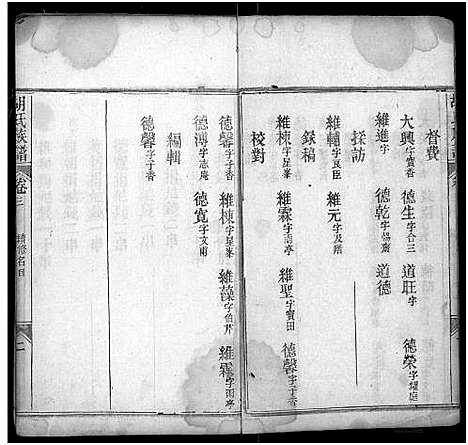 督費
大興字寶亭 德生字合三 道旺字 德榮字耀庭
維進字 德乾字惕齋 道德
採訪
維輔字良臣 維元字及階
錄稿
維棟字星峯 維霖字雨亭 維聖字寶田 德馨字子香
校對
德馨字子香 維棟字星峯 維藻字伯芹 維霖字雨亭
德溥字志庵 德寬字文甫
編輯
德馨字子香
胡氏族譜 卷三 續修名目 二